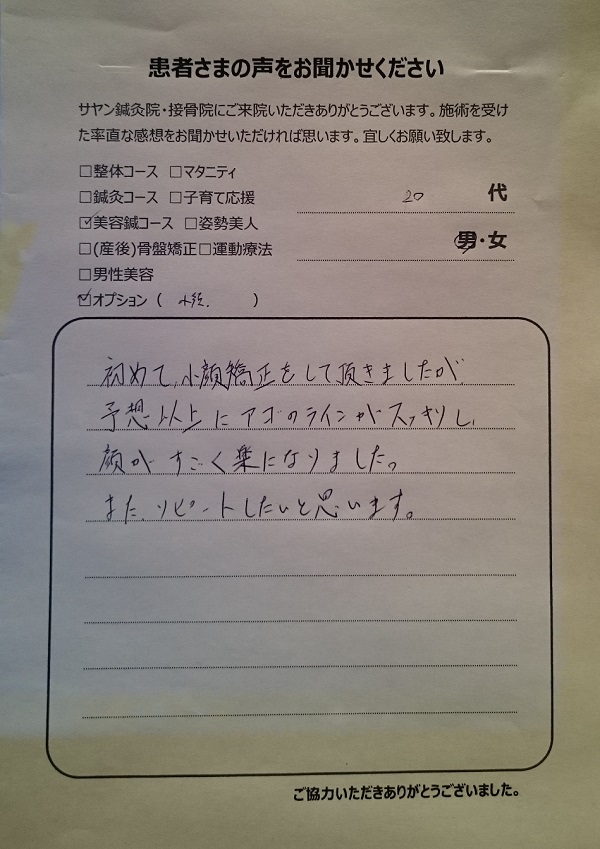 患者さまの声をお聞かせください
サヤン鍼灸院・接骨院にご来院いただきありがとうございます。施術を受け
た率直な感想をお聞かせいただければ思います。宜しくお願い致します。
□整体コース □マタニティ
□鍼灸コース □子育て応援
☑美容鍼コース □姿勢美人
□(産後)骨盤矯正□運動療法
□男性美容
☑オプション ( 小顔. )
20 代
男・女
初めて、小顔矯正をして頂きましたが、
予想以上にアゴのラインがスッキリし、
顔がすごく楽になりました。
また、リピートしたいと思います。
ご協力いただきありがとうございました。